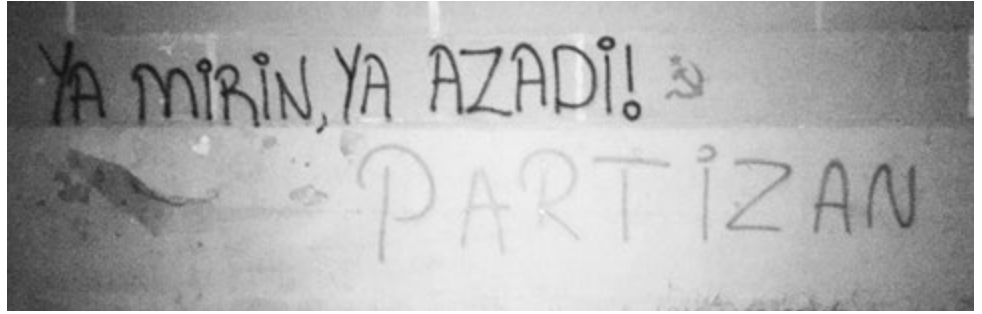 YA MİRİN, YA AZADİ!
PARTİZAN